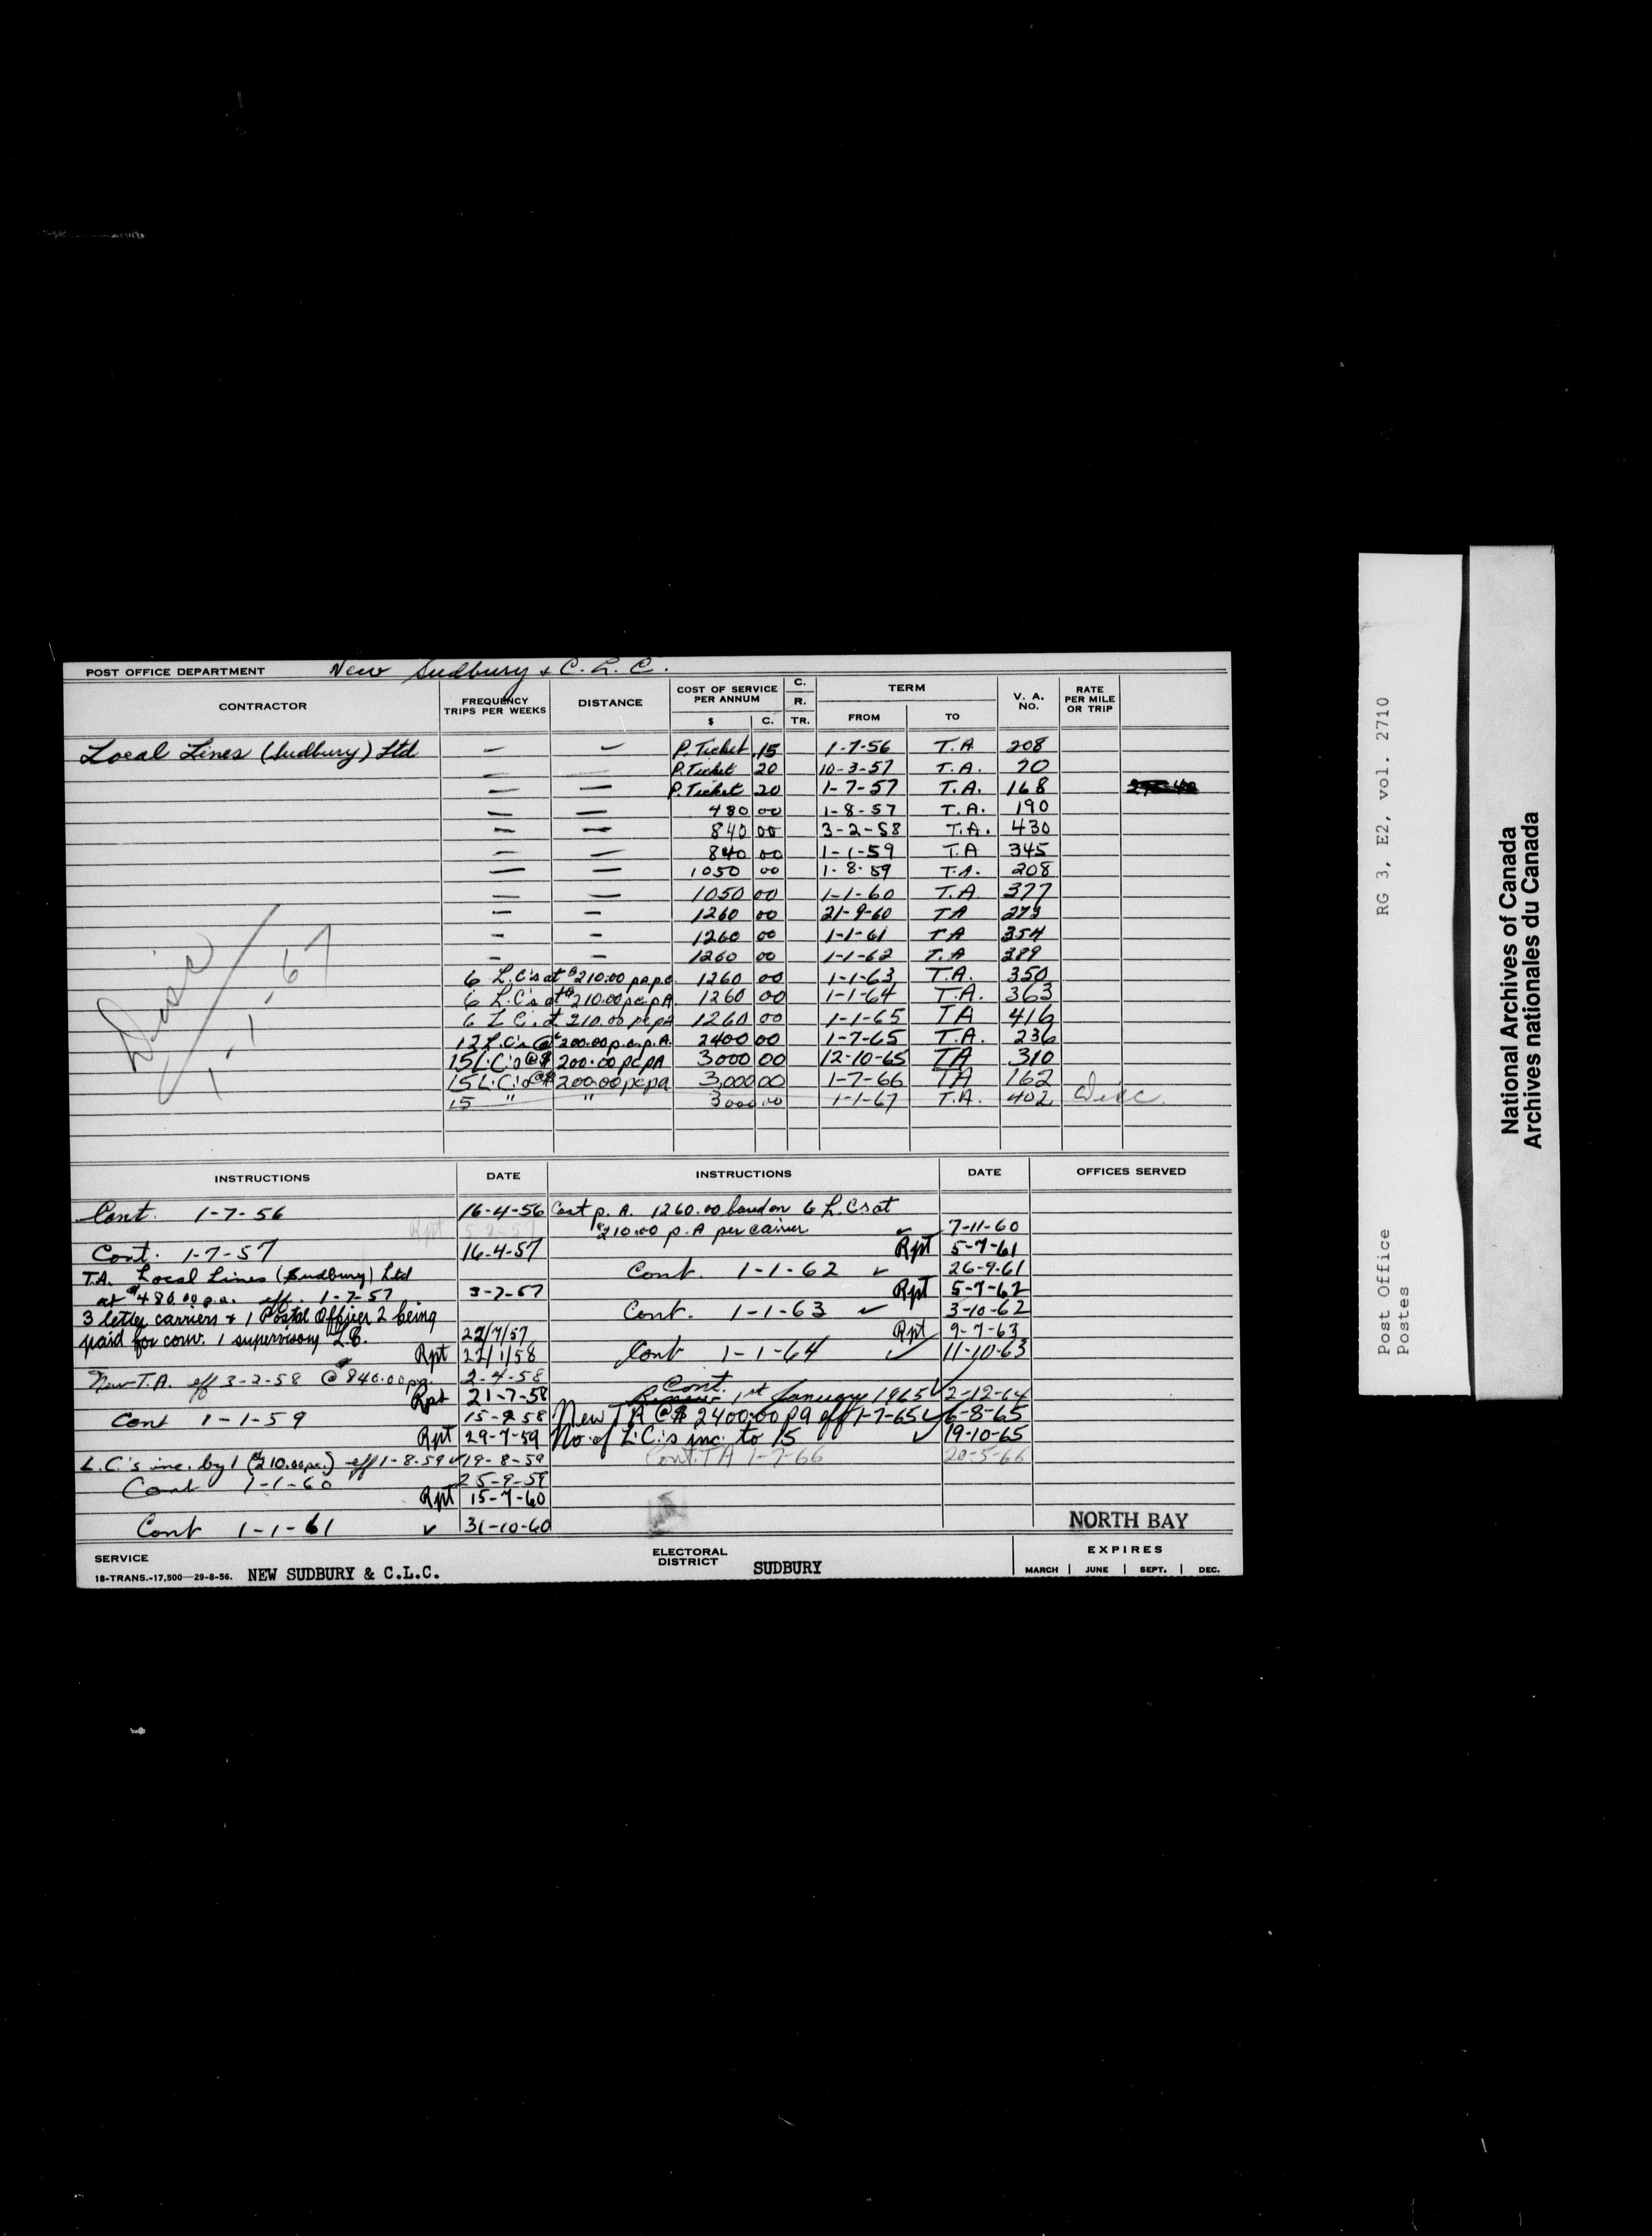 POST OFFICE DEPARTMENT New Sudbury & C. L. C.
CONTRACTOR FREQUENCY TRIPS PER WEEKS DISTANCE COST OF SERVICE PER ANNUM $ C. C. R. TR. TERM FROM TO V. A. NO. RATE PER MILE OR TRIP
Local Lines (Sudbury) Ltd — — P. Ticket .15 1-7-56 T.A 208
— — P. Ticket 20 10-3-57 T.A. 70
— — P. Ticket 20 1-7-57 T.A. 168
— — 480 00 1-8-57 T.A. 190
— — 840 00 3-2-58 T.A. 430
— — 840 00 1-1-59 T.A 345
— — 1050 00 1-8-59 T.A. 208
— — 1050 00 1-1-60 T.A 377
— — 1260 00 21-9-60 TA
— — 1260 00 1-1-61 TA 354
— — 1260 00 1-1-62 T.A 389
6 L.C's at $210.00 pa.p.c. 1260 00 1-1-63 T.A. 350
6 L.C's at $210.00 pc.pA 1260 00 1-1-64 T.A. 363
6 L C. at 210.00 pc pa 1260 00 1-1-65 TA 416
12 L.C's @ $200.00 p.c.p.A. 2400 00 1-7-65 T.A. 236
15 L.C.'s @ $ 200.00 pc pA 3000 00 12-10-65 TA 310
15 L.C.'s @ $ 200.00 pc pa 3,000 00 1-7-66 TA 162
15 " " 3000 00 1-1-67 T.A. 402 Disc.
Disc 1.1.67
INSTRUCTIONS DATE INSTRUCTIONS DATE OFFICES SERVED
Cont. 1-7-56 16-4-56
Rpt
Cont. 1-7-57 16-4-57
T.A. Local Lines (Sudbury) Ltd
at $480.00 p.a. eff. 1-7-57 3-7-57
3 letter carriers & 1 Postal Officer 2 being
paid for conv. 1 supervisory L.C. 22/7/57
Rpt 22/1/58
New T.A. eff 3-2-58 @ $840.00 pa. 2-4-58
Rpt 21-7-58
Cont 1-1-59 15-9-58
Rpt 29-7-59
L.C.'s inc. by 1 ($210.00 pa.) eff 1-8-59 ✓ 19-8-59
Cont 1-1-60 25-9-59
Rpt 15-7-60
Cont 1-1-61 ✓ 31-10-60
Cost p. A. 1260.00 based on 6 L.Cs at
$210.00 p. A per carrier ✓ 7-11-60
Rpt 5-7-61
Cont. 1-1-62 ✓ 26-9-61
Rpt 5-7-62
Cont. 1-1-63 ✓ 3-10-62
Rpt 9-7-63
Cont 1-1-64 ✓ 11-10-63
Cont.
1st January 1965 ✓ 2-12-64
New TA @ $ 2400.00 pa eff 1-7-65 ✓ 6-8-65
No. of L.C.'s inc. to 15 ✓ 19-10-65
Cont. TA 1-7-66 20-5-66
NORTH BAY
SERVICE
18-TRANS.-17,500—29-8-56. NEW SUDBURY & C.L.C.
ELECTORAL DISTRICT SUDBURY
EXPIRES
MARCH | JUNE | SEPT. | DEC.
RG 3, E2, vol. 2710
Post Office
Postes
National Archives of Canada
Archives nationales du Canada